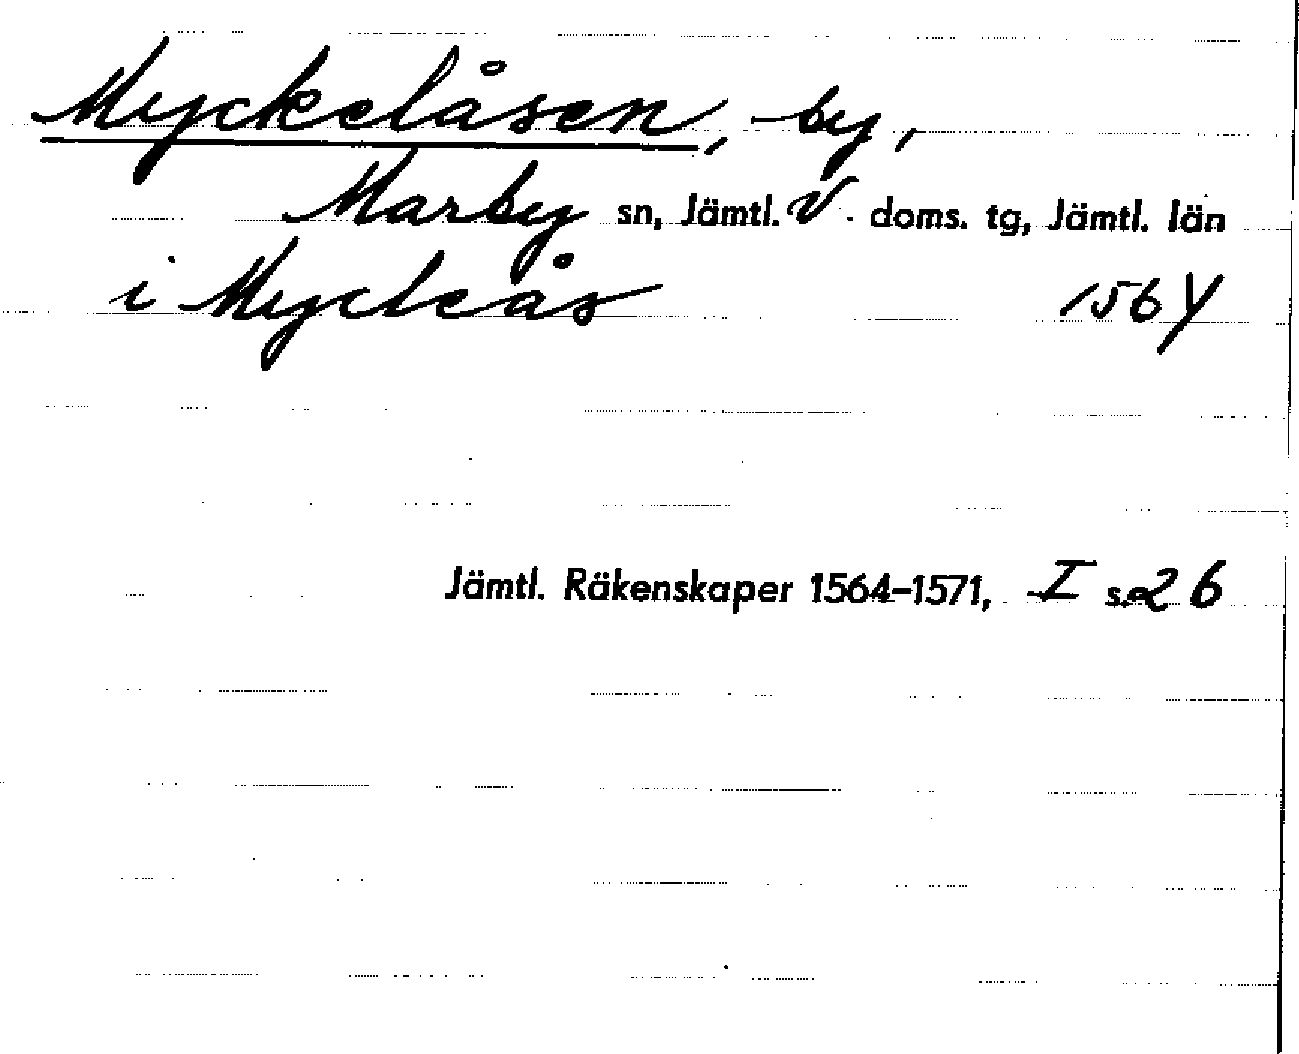 Myckelåsen, by,
Marby sn, Jämtl. V. doms. tg, Jämtl. län
i Myckeås 1564
Jämtl. Räkenskaper 1564-1571, I s. 26